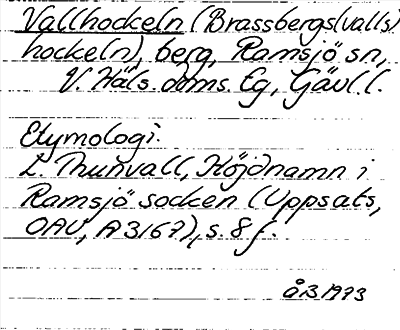 Vallhockeln (Brassbergs(valls)
hockeln), berg, Ramsjö sn,
V. Häls. doms. Eg, Gävl. l.
Etymologi.
L. Thunvall, Höjdnamn i
Ramsjö socken (Uppsats,
OAU, A3167), s. 8 f.
ÅB 1973